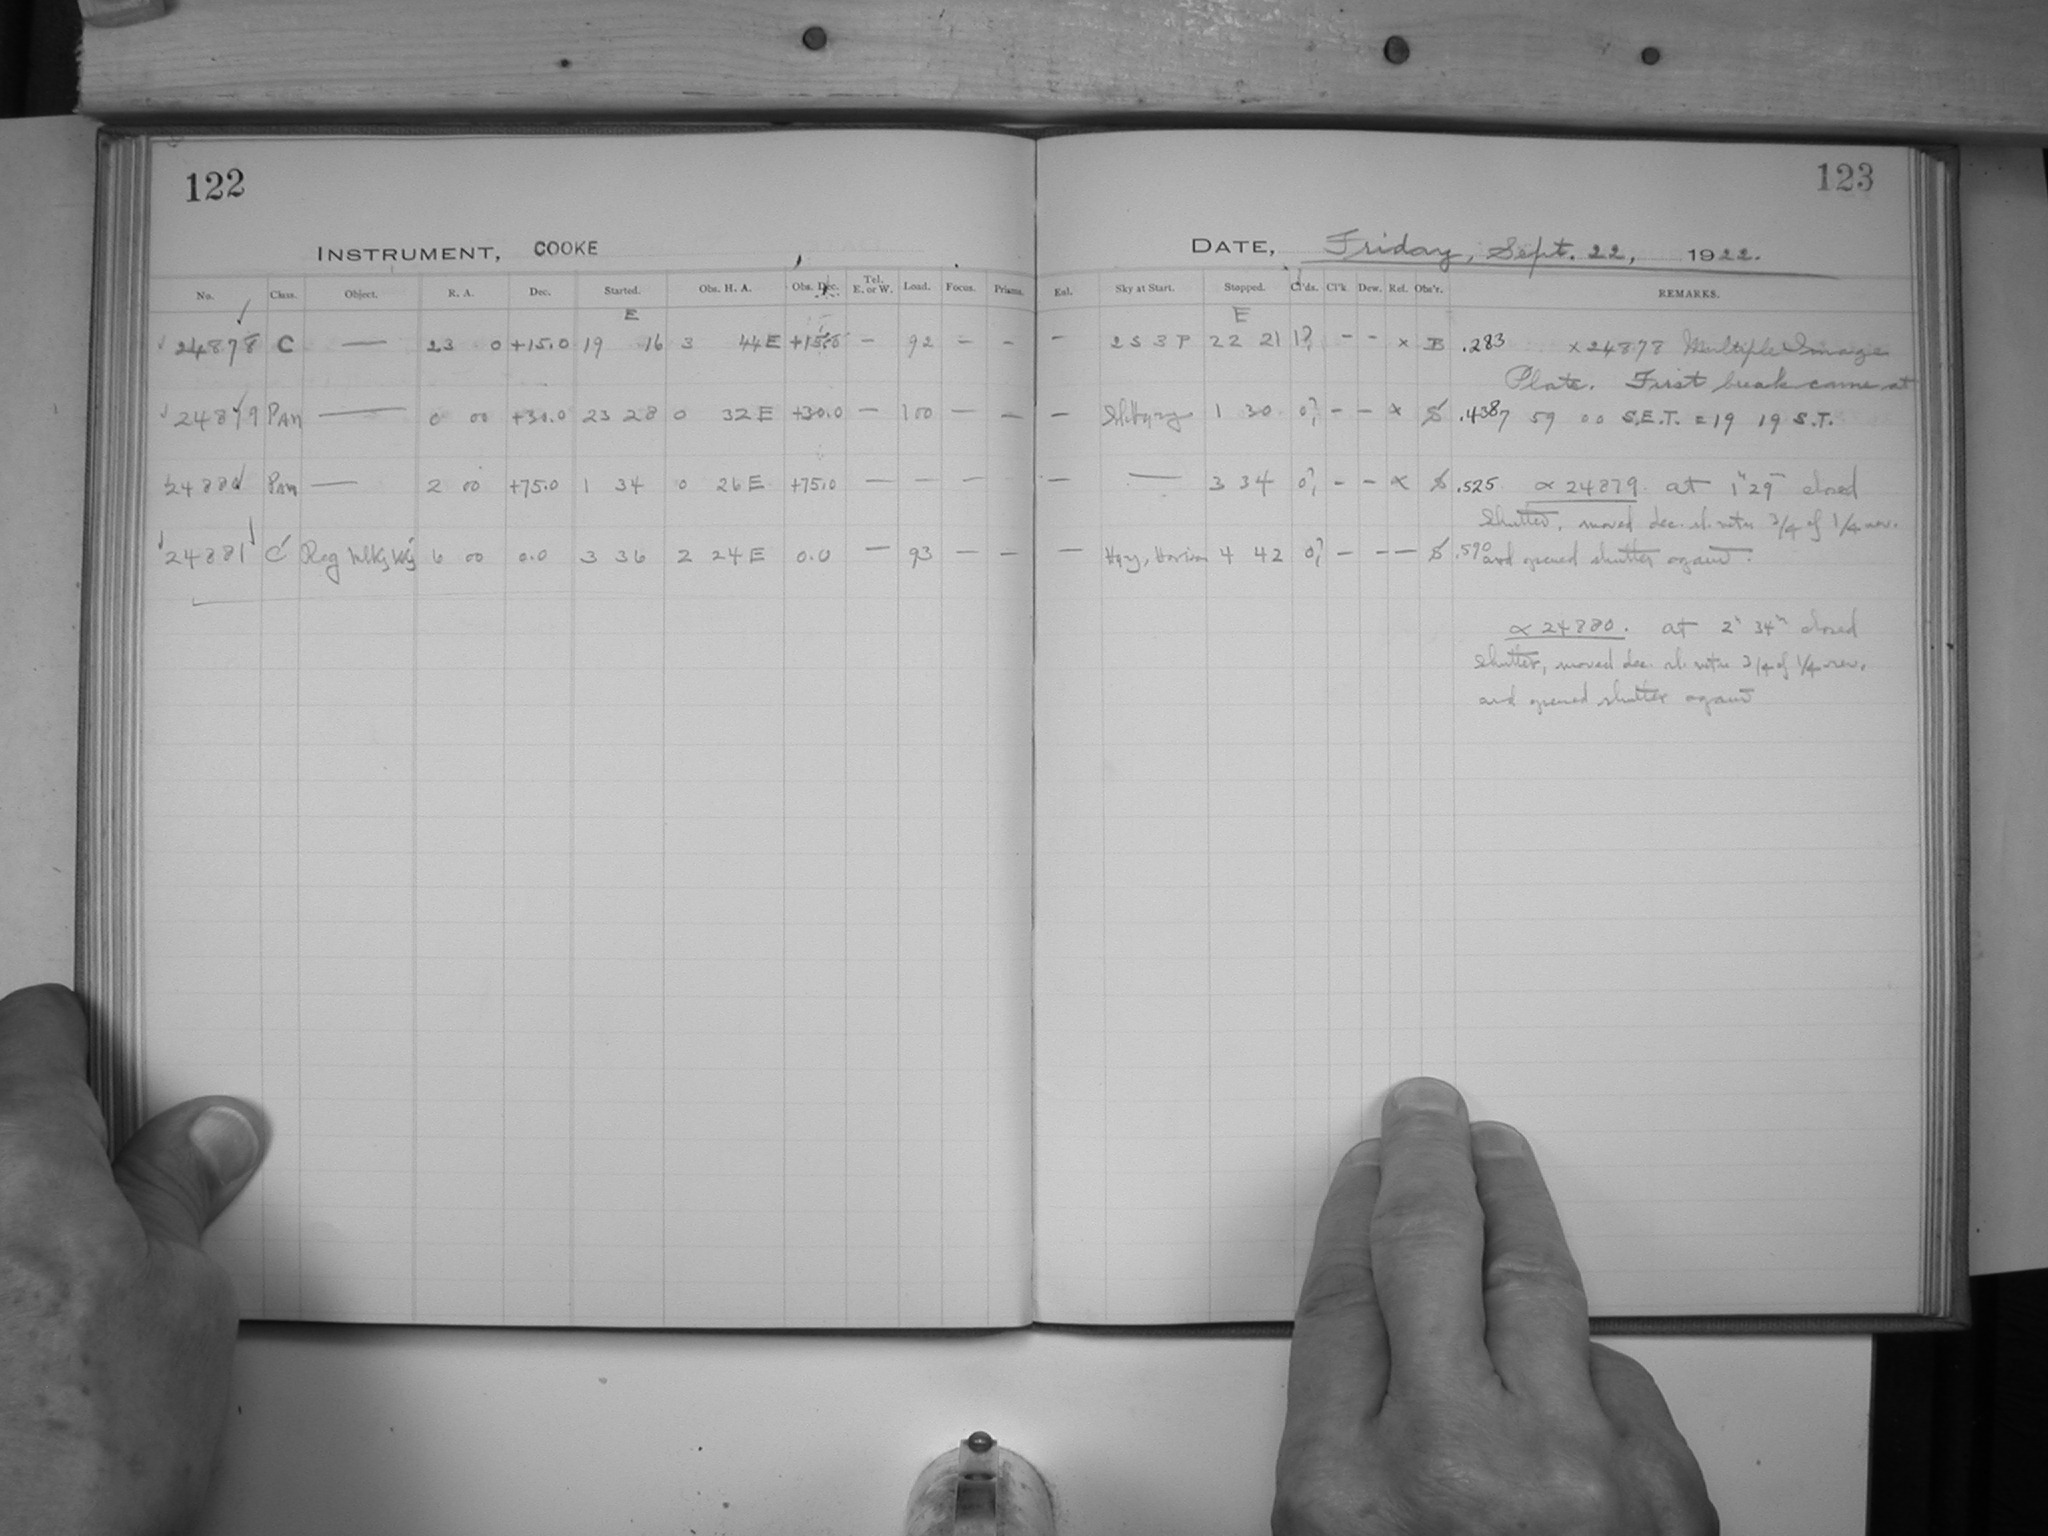 122
123
INSTRUMENT, COOKE
DATE, Friday, Sept. 22, 1922.
No. Class. Object. R. A. Dec. Started. Obs. H. A. Obs. Dec. Tel. E. or W. Load. Focus. Prisms. Enl. Sky at Start. Stopped. Cl'ds. Cl'k. Dew. Ref. Obs'r. REMARKS.
E E
24878 C — 23 0 +15.0 19 16 3 44 E +15.0 — 92 – – – 2 S 3 P 22 21 1? – – x B .283 x 24878 Multiple Image
Plate. First break came at
24879 Pan — 0 00 +30.0 23 28 0 32 E +30.0 — 100 — — — 1 30 0? – – x S .438 7 59 00 S.E.T. = 19 19 S.T.
24880 Pan — 2 00 +75.0 1 34 0 26 E +75.0 — — — — — 3 34 0? – – x S .525 x 24879 at 1h 29m closed
shutter, moved dec. 3/4 of 1/4 rev.
24881 C Reg 6 00 0.0 3 36 2 24 E 0.0 — 93 — — — Hazy, Horizon 4 42 0? — — — S .590 and opened shutter again.
x 24880. at 2h 34m closed
shutter, moved dec. 3/4 of 1/4 rev.
and opened shutter again